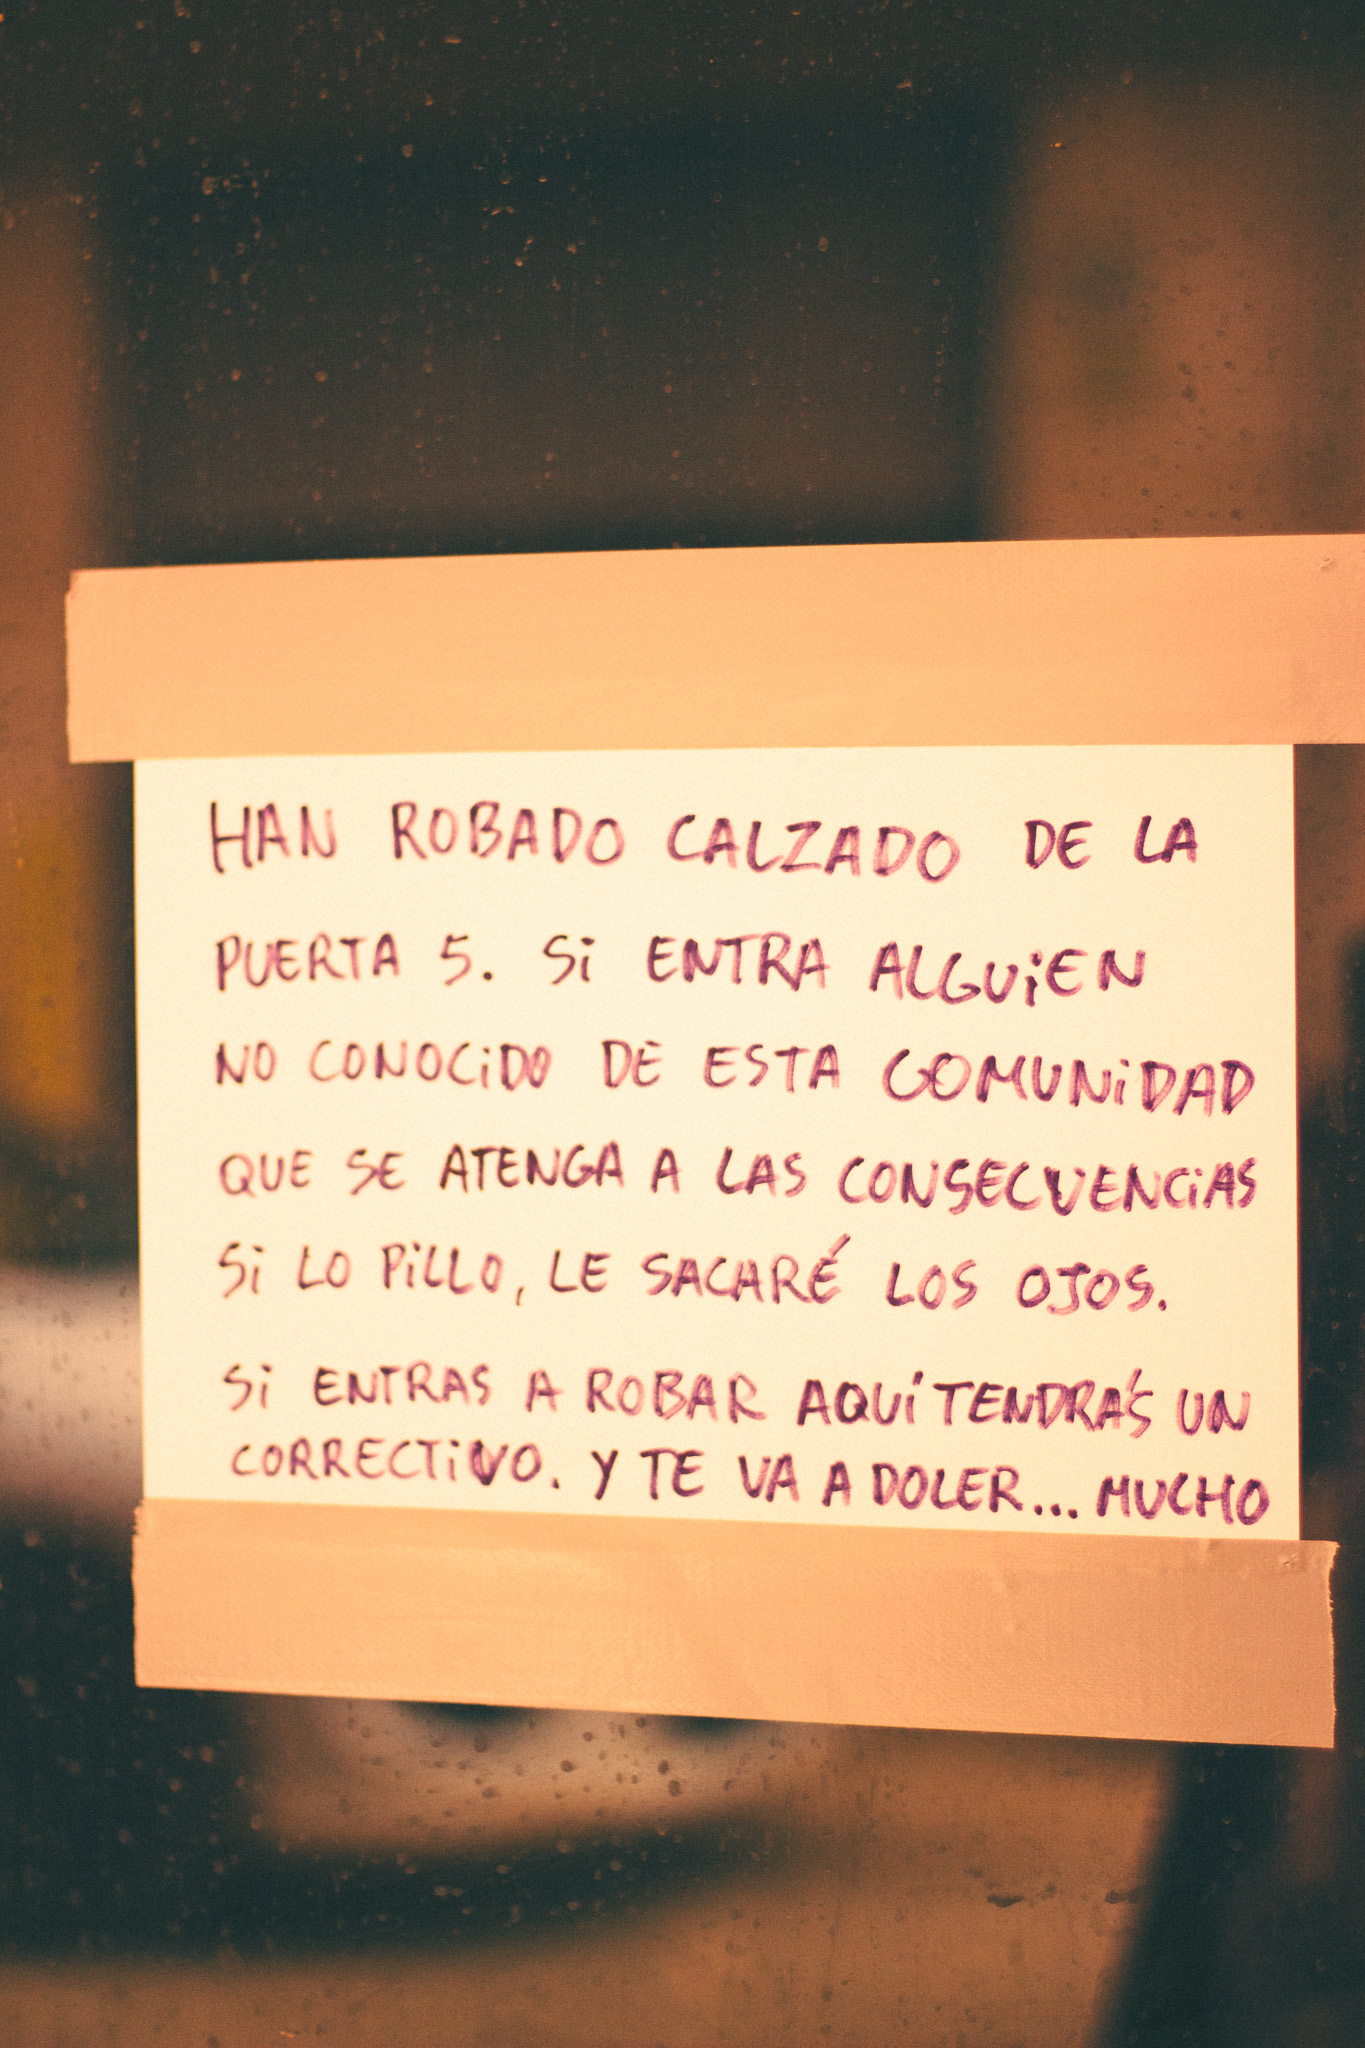 HAN ROBADO CALZADO DE LA
PUERTA 5. Si ENTRA ALGUiEN
NO CONOCiDO DE ESTA COMUNiDAD
QUE SE ATENGA A LAS CONSECUENCiAS
Si LO PiLLO, LE SACARÉ LOS OJOS.
Si ENTRAS A ROBAR AQUÍ TENDRÁS UN
CORRECTiVO. Y TE VA A DOLER... MUCHO